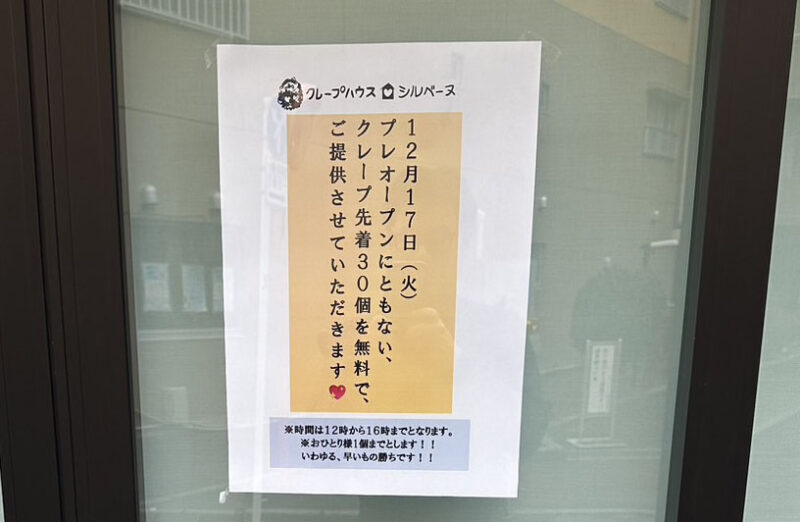 クレープハウス シルベーヌ
12月17日（火）
プレオープンにともない、
クレープ先着30個を無料で、
ご提供させていただきます❤
※時間は12時から16時までとなります。
※おひとり様1個までとします！！
いわゆる、早いもの勝ちです！！